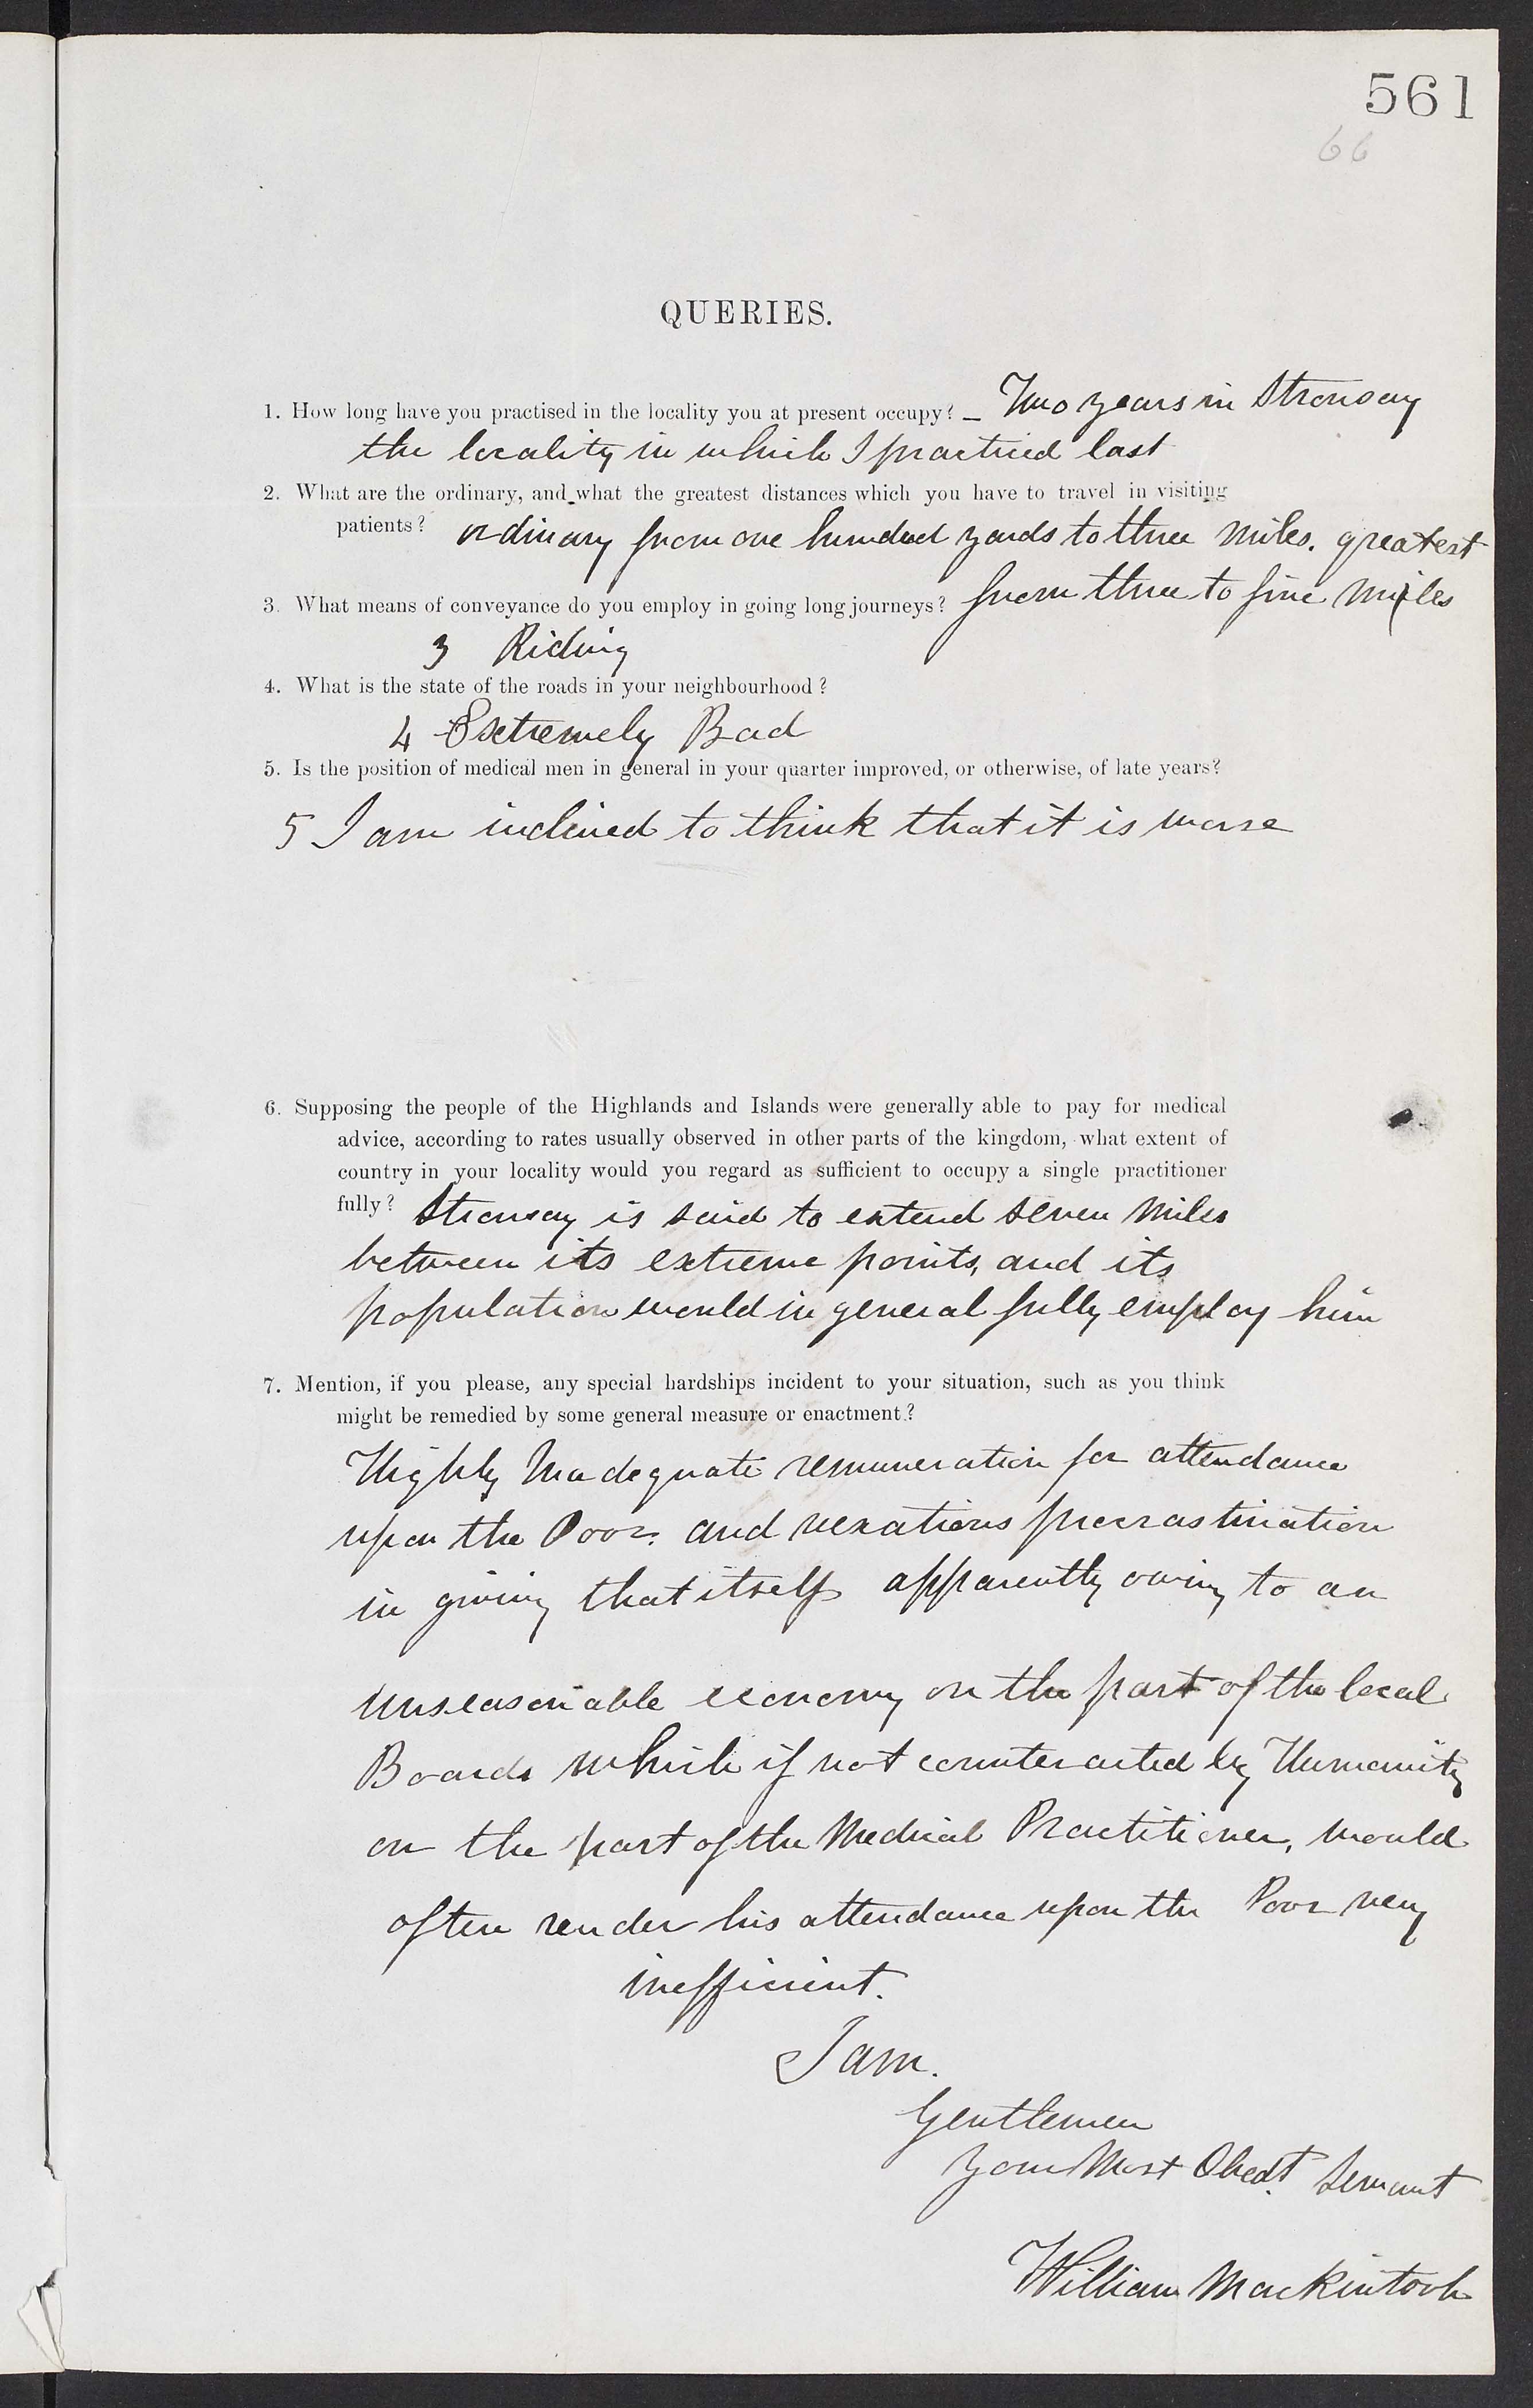 561
66
QUERIES.
1. How long have you practised in the locality you at present occupy? – Two years in Stronsay
the locality in which I practiced last
2. What are the ordinary, and what the greatest distances which you have to travel in visiting
patients? ordinary from one hundred yards to three miles. greatest
3. What means of conveyance do you employ in going long journeys? from three to five miles
3 Riding
4. What is the state of the roads in your neighbourhood?
4 Extremely Bad
5. Is the position of medical men in general in your quarter improved, or otherwise, of late years?
5 I am inclined to think that it is worse
6. Supposing the people of the Highlands and Islands were generally able to pay for medical
advice, according to rates usually observed in other parts of the kingdom, what extent of
country in your locality would you regard as sufficient to occupy a single practitioner
fully? Stronsay is said to extend seven miles
between its extreme points, and its
population would in general fully employ him
7. Mention, if you please, any special hardships incident to your situation, such as you think
might be remedied by some general measure or enactment?
Highly Inadequate remuneration for attendance
upon the Poor. and vexatious procrastination
in giving that itself apparently owing to an
unseasonable economy on the part of the local
Boards which if not counteracted by Humanity
on the part of the Medical Practitioner, would
often render his attendance upon the Poor very
inefficient.
I am.
Gentlemen
Your Most Obedt. Servant
William Mackintosh